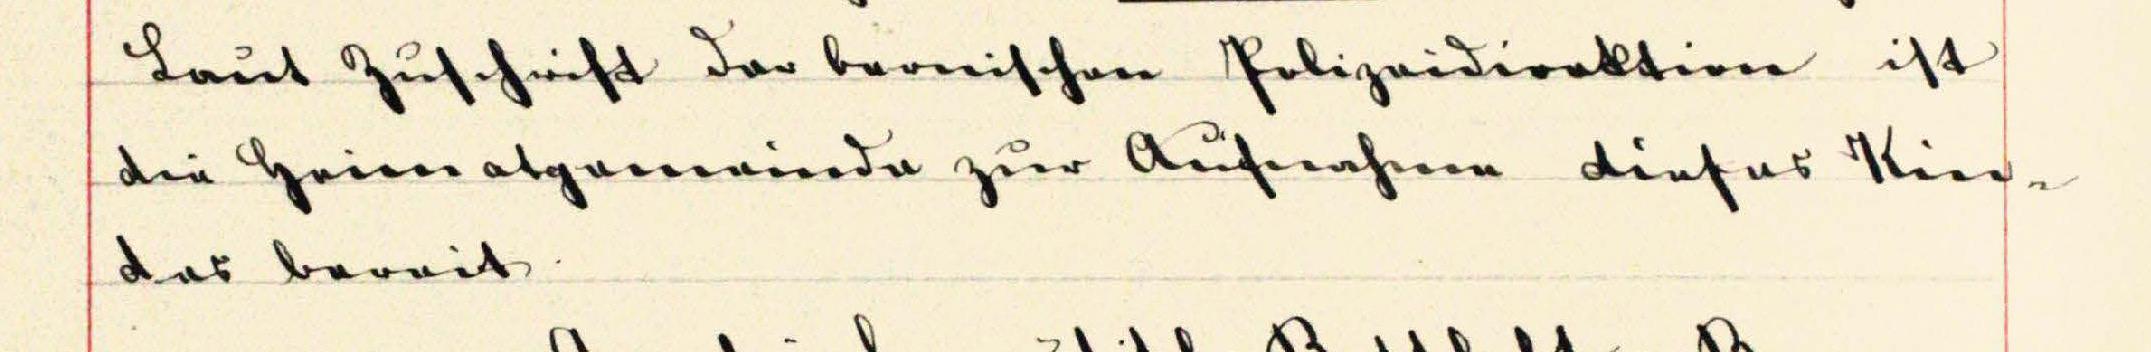 Laut Zuschrift der bernischen Polizeidirektion ist
die Heimatgemeinde zur Aufnahme dieses Kin-
des bereit.